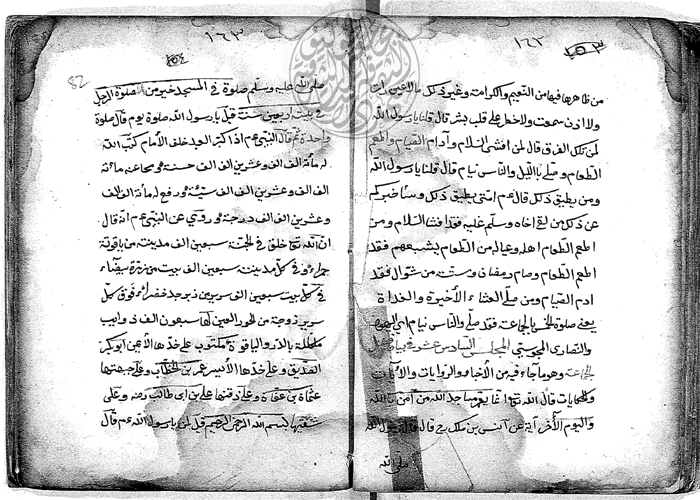 ١٦٢
من ظاهرها فيها من النعيم والكرامة وغير ذلك ما لا عين رات
ولا اذن سمعت ولا خطر على قلب بشر قال قلنا يا رسول الله
لمن تلك الغرف قال لمن افشى السلام وادام الصيام واطعم
الطعام وصلى بالليل والناس نيام قال قلنا يا رسول الله
ومن يطيق ذلك قال عم امتى يطيق ذلك وساخبركم
عن ذلك من لقى اخاه وسلم عليه فقد افشا السلام ومن
اطعم الطعام اهله وعياله من الطعام يشبعهم فقد
اطعم الطعام ومن صام رمضان وستة من شوال فقد
ادم الصيام ومن صلى العشاء الأخيرة والغداة
يعنى صلوة الجماعة فقد صلى والناس نيام اى اليهود
والنصارى المجوسى المجلس السادس عشر فى
الجماعة وهو ما جاء فيه من الأخبار والروايات والآيات
والحكايات قال الله تع انما يعمر مساجد الله من آمن بالله
واليوم الآخر آية عن انس بن ملك رض قال قال رسول الله
صلى الله
١٦٣
82
صلى الله عليه وسلم صلوة فى المسجد خير من صلوة الرجل
فى بيت اربعين سنة قيل يا رسول الله صلوة يوم قال صلوة
واحدة ثم قال النبى عم اذا كبر العبد خلف الأمام كتب الله
له مائة الف الف وعشرين الف الف حسنة ومحا عنه مائة
الف الف وعشرين الف الف سيئة ورفع له مائة الف الف
وعشرين الف الف درجة وروى عن النبى عم انه قال
ان الله تع خلق فى الجنة سبعين الف مدينة من ياقوتة
حمراء فى كل مدينة سبعين الف بيت من درة بيضاء
فى كل بيت سبعين الف سرير من زبرجد خضراء فوق كل
سرير زوجة من الحور العين لها سبعون الف ذوايب
مكللة بالدر والياقوة مكتوب على خدها الأيمن ابو بكر
الصديق وعلى خدها الأيسر عمر بن الخطاب وعلى جبهتها
عثمان بن عفان وعلى ذقنها على بن ابى طالب رضه وعلى
شفتها بسم الله الرحمن الرحيم قيل لمن يا رسول الله عم قال